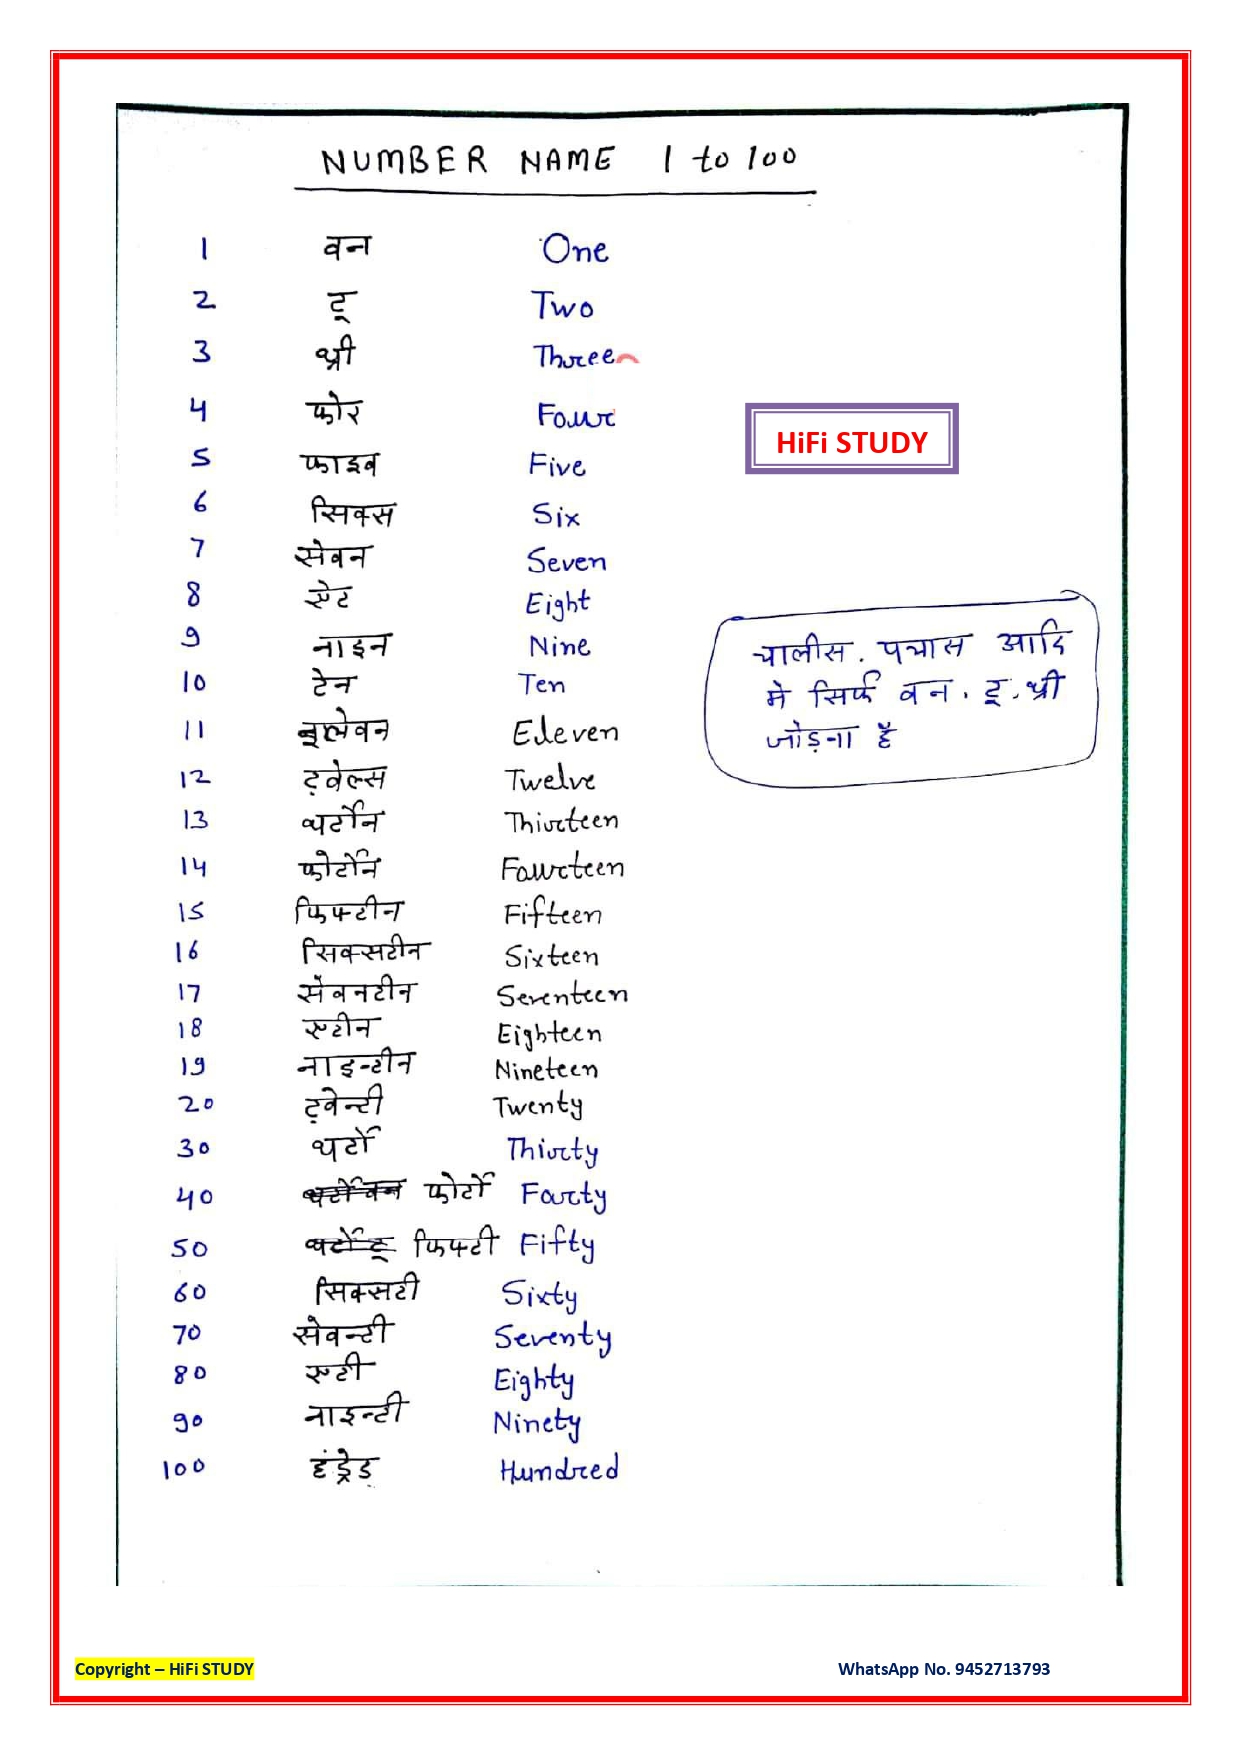 NUMBER NAME 1 to 100
1 वन One
2 टू Two
3 थ्री Three
4 फोर Four
HiFi STUDY
5 फाइव Five
6 सिक्स Six
7 सेवन Seven
8 एट Eight
9 नाइन Nine
चालीस, पचास आदि
मे सिर्फ वन, टू, थ्री
जोड़ना है
10 टेन Ten
11 इलेवन Eleven
12 ट्वेल्स Twelve
13 थर्टीन Thirteen
14 फोर्टीन Fourteen
15 फिफ्टीन Fifteen
16 सिक्सटीन Sixteen
17 सेवनटीन Seventeen
18 एटीन Eighteen
19 नाइन्टीन Nineteen
20 ट्वेन्टी Twenty
30 थर्टी Thirty
40 थर्टी वन फोर्टी Forty
50 थर्टी टू फिफ्टी Fifty
60 सिक्सटी Sixty
70 सेवन्टी Seventy
80 एटी Eighty
90 नाइन्टी Ninety
100 हंड्रेड Hundred
Copyright – HiFi STUDY WhatsApp No. 9452713793